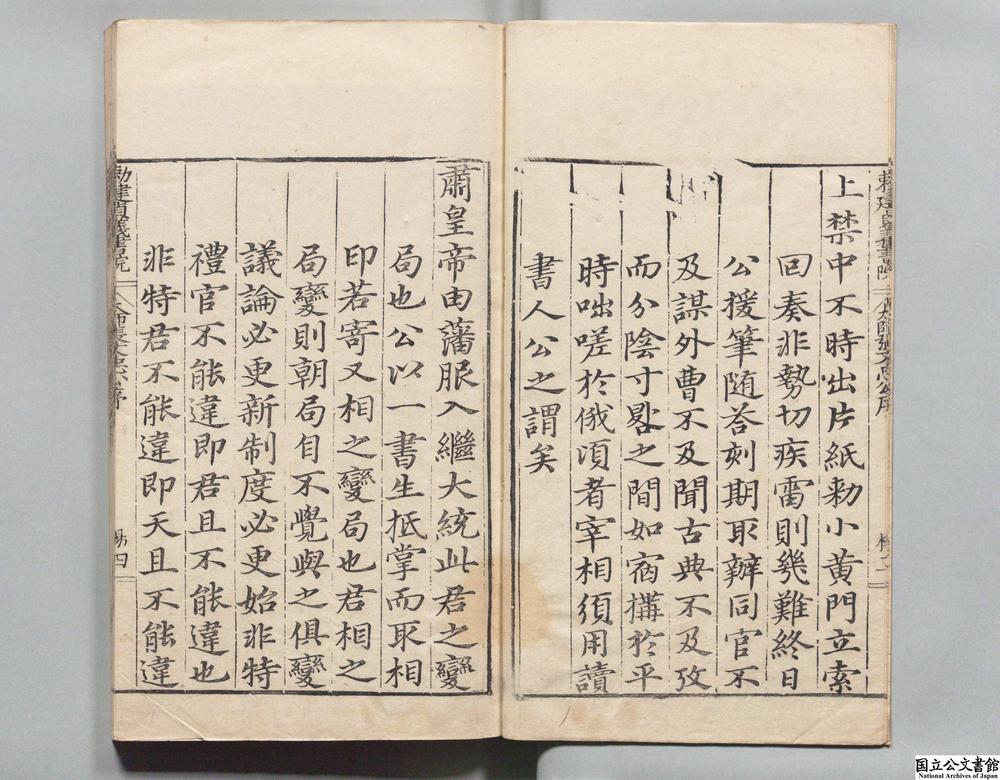 上禁中不時出片紙勅小黃門立索
回奏非勢切疾雷則幾難終日
公援筆随荅刻期取辦同官不
及謀外曹不及聞古典不及攷
而分陰寸晷之間如宿搆於平
時咄嗟於俄頃者宰相須用讀
書人公之謂矣
肅皇帝由藩服入繼大統此君之變
局也公以一書生抵掌而取相
印若寄又相之變局也君相之
局變則朝局自不覺與之俱變
議論必更新制度必更始非特
禮官不能違即君且不能違也
非特君不能違即天且不能違
勅建貞義書院
國立公文書館
National Archives of Japan